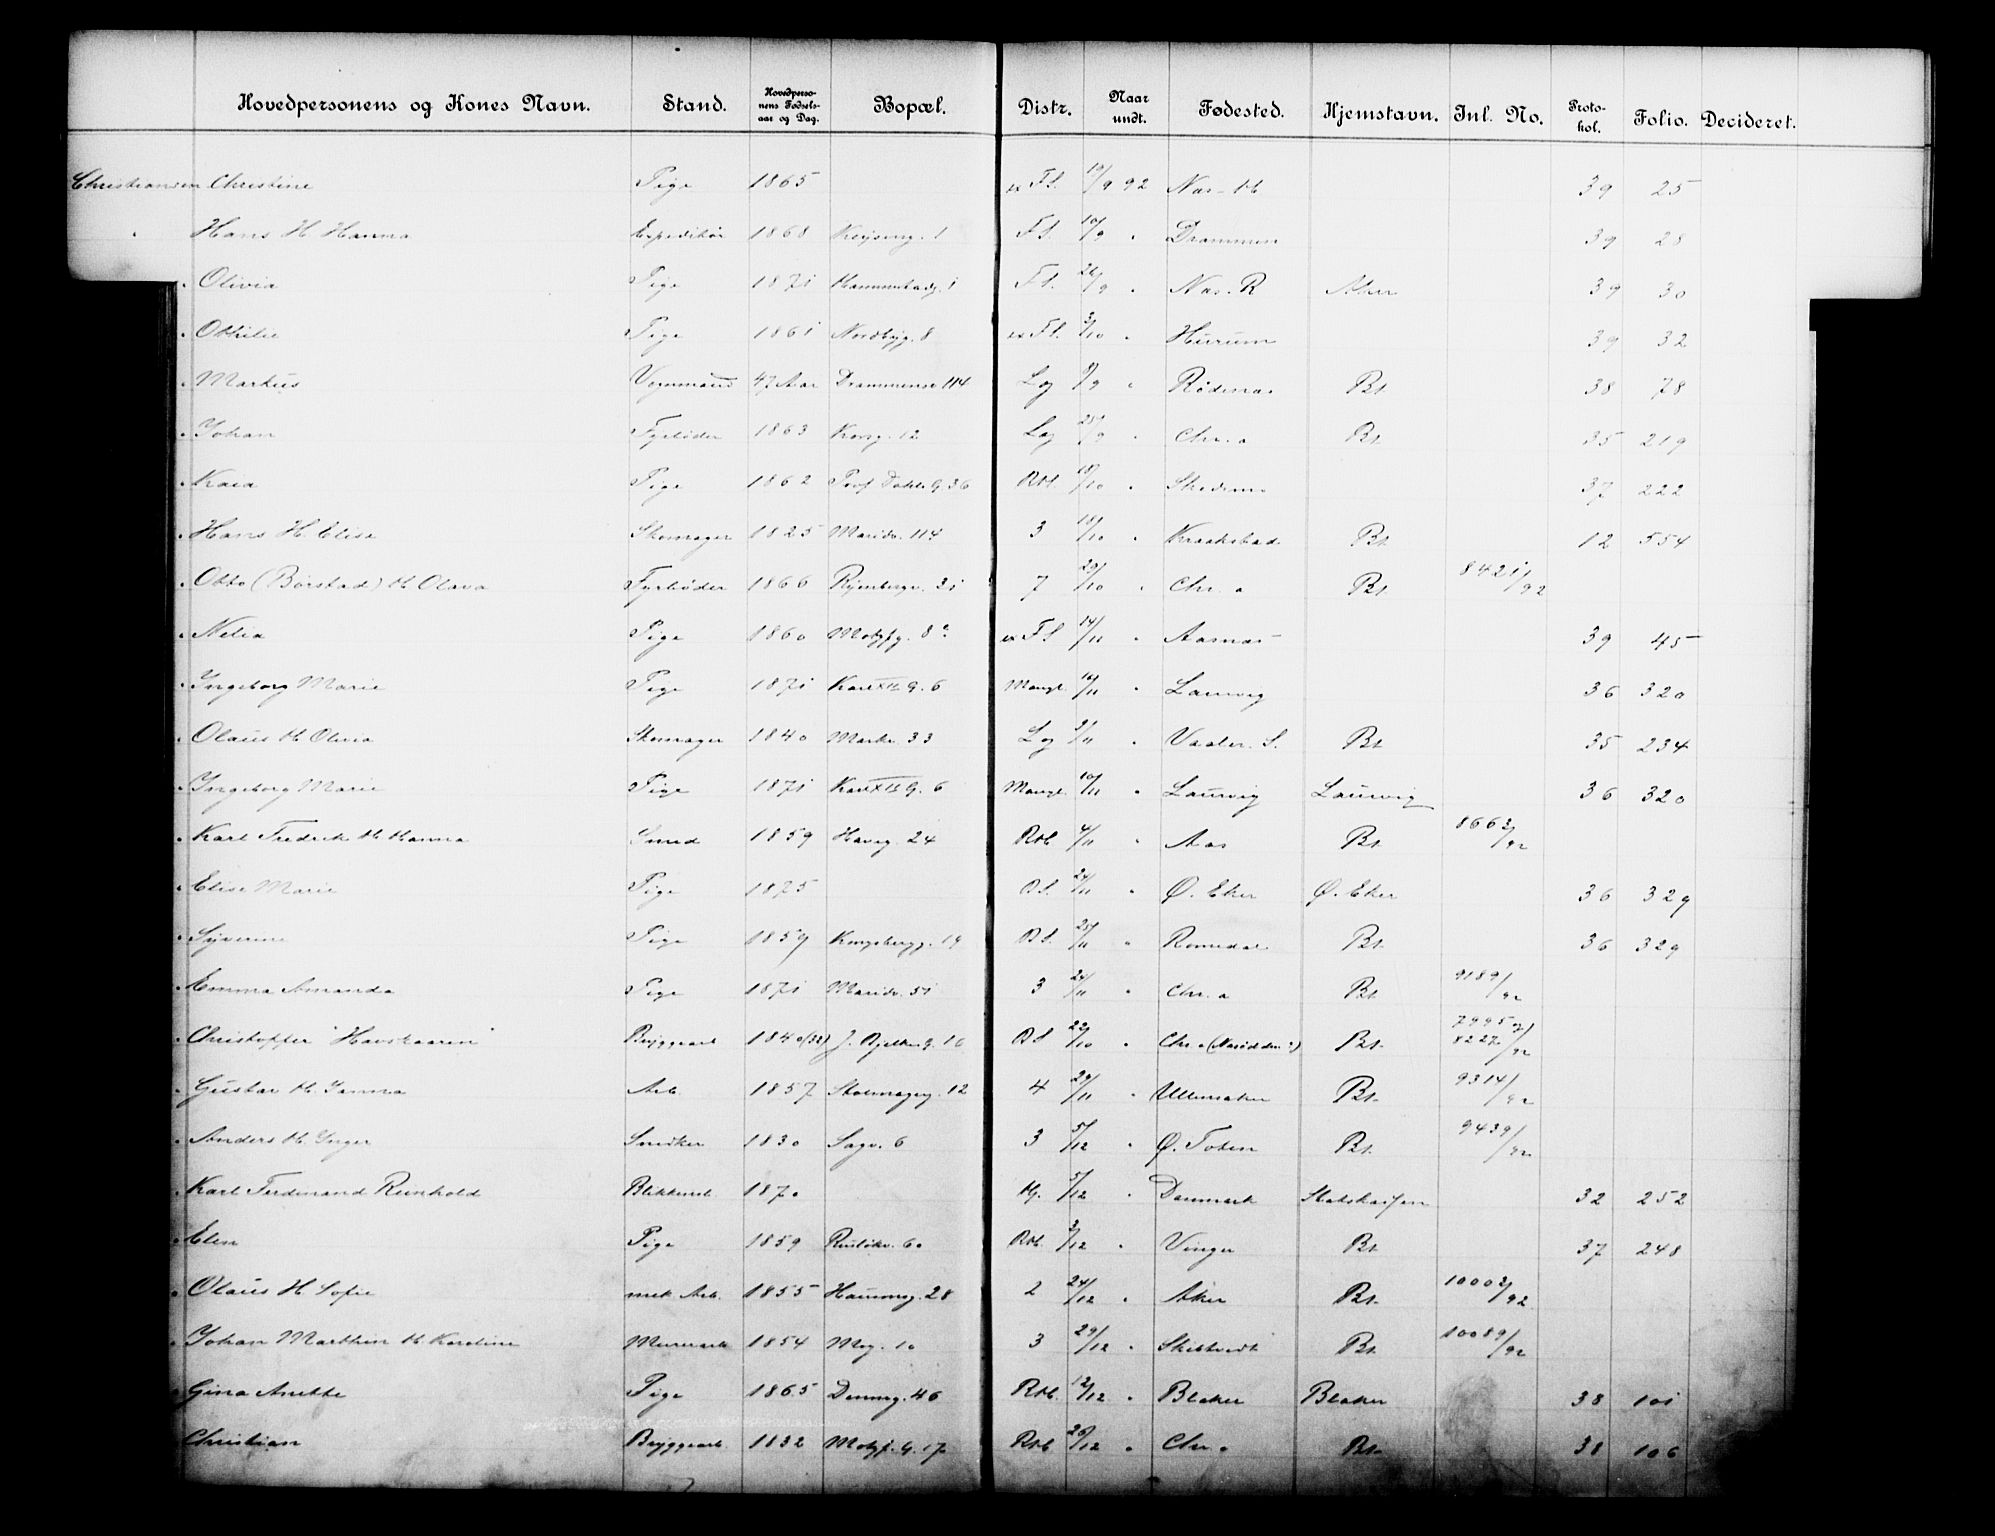 Hovedpersonens og Kones Navn. Stand. Hovedpersonens Fødselsaar og Dag. Bopæl. Distr. Naar undt. Fødested. Hjemstavn. Inl. No. Protokol. Folio. Decideret.
Christiansen Christine Pige 1865 ex Fl. 19/9 92 Nes-H 39 25
" Hans H. Hanna Expeditør 1868 Keyserg. 1 Fl. 10/9 " Drammen 39 28
" Olivia Pige 1871 Hammerstadg. 1 Fl. 26/9 " Nes. R Aker 39 30
" Othilie Pige 1861 Nordbyg. 8 ex Fl. 3/10 " Hurum 39 32
" Markus Vognmand 47 Aar Drammensv 114 Lg 9/9 " Rødenes Bt 38 78
" Johan Fyrbøder 1863 Korsg. 12 Lg 25/9 " Chr.a Bt. 35 219
" Kaia Pige 1862 Prof Dahls G. 36 Rtl. 15/10 " Skedsmo 37 222
" Hans H. Elise Skomager 1825 Maridv. 114 3 18/10 " Kraakstad Bt. 12 554
" Otto (Børstad) H. Olava Fyrbøder 1866 Ryenbergv. 31 7 20/10 " Chr.a Bt. 8421/92
" Nelia Pige 1860 Motzfg. 8 ex Fl 14/11 " Aasnes 39 45
" Ingeborg Marie Pige 1871 Karl XII G. 6 Mangl. 10/11 " Laurvig 36 320
" Olaus H. Olivia Skomager 1840 Markv. 33 Lg 9/11 " Vaaler. S. Bt 35 234
" Ingeborg Marie Pige 1871 Karl XII G. 6 Mangl. 10/11 " Laurvig Laurvig 36 320
" Karl Fredrik H. Hanna Smed 1859 Haveg. 24 Rtl. 4/11 " Aas Bt. 8662/92
" Elise Marie Pige 1875 Bl. 24/11 " Ø. Eker Ø. Eker 36 329
" Syverine Pige 1859 Kongsbergg. 19 Bl. 25/11 " Romedal Bt. 36 329
" Emma Amanda Pige 1871 Maridv. 51 3 24/11 " Chr.a Bt. 9189/92
" Christoffer "Havskaaren" Bryggearb 1840 (32) J. Bjelkes g. 16 Bl 22/10 " Chr.a Bt. 7995 og 8227/92
" Gustav H. Janna Arb. 1857 Stolmagerg. 12 4 29/11 " Ullensaker Bt. 9314/92
" Anders H. Inger Snedker 1830 Sagv. 6 3 5/12 " Ø. Toten Bt. 9439/92
" Karl Ferdinand Reinhold Blikkensl. 1870 H. 5/12 " Danmark Statskassen 32 252
" Elen Pige 1859 Ruseløkv. 60 Rtl. 3/12 " Vinger Bt. 37 248
" Olaus H. Sofie mek Arb. 1855 Hausmg. 28 2 24/12 " Aker Bt. 10002/92
" Johan Marthin H. Karoline Murerarb 1854 Mog. 10 3 29/12 " Skibtvedt Bt. 10089/92
" Gina Anette Pige 1865 Dronng. 46 Rtl. 12/12 " Blaker Blaker 38 101
Christian Bryggearb. 1832 Motzf. G. 17 Rtl 26/12 " Chr.a Bt. 38 106